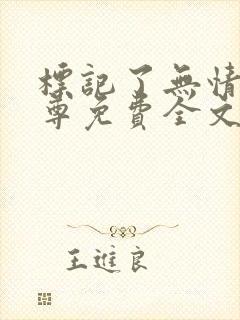 標記了無情
尊免費全文
王進良